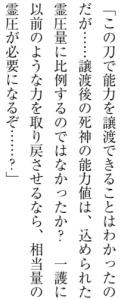 「この刀で能力を譲渡できることはわかったの
だが……譲渡後の死神の能力値は、込められた
霊圧量に比例するのではなかったか？　一護に
以前のような力を取り戻させるなら、相当量の
霊圧が必要になるぞ……？」